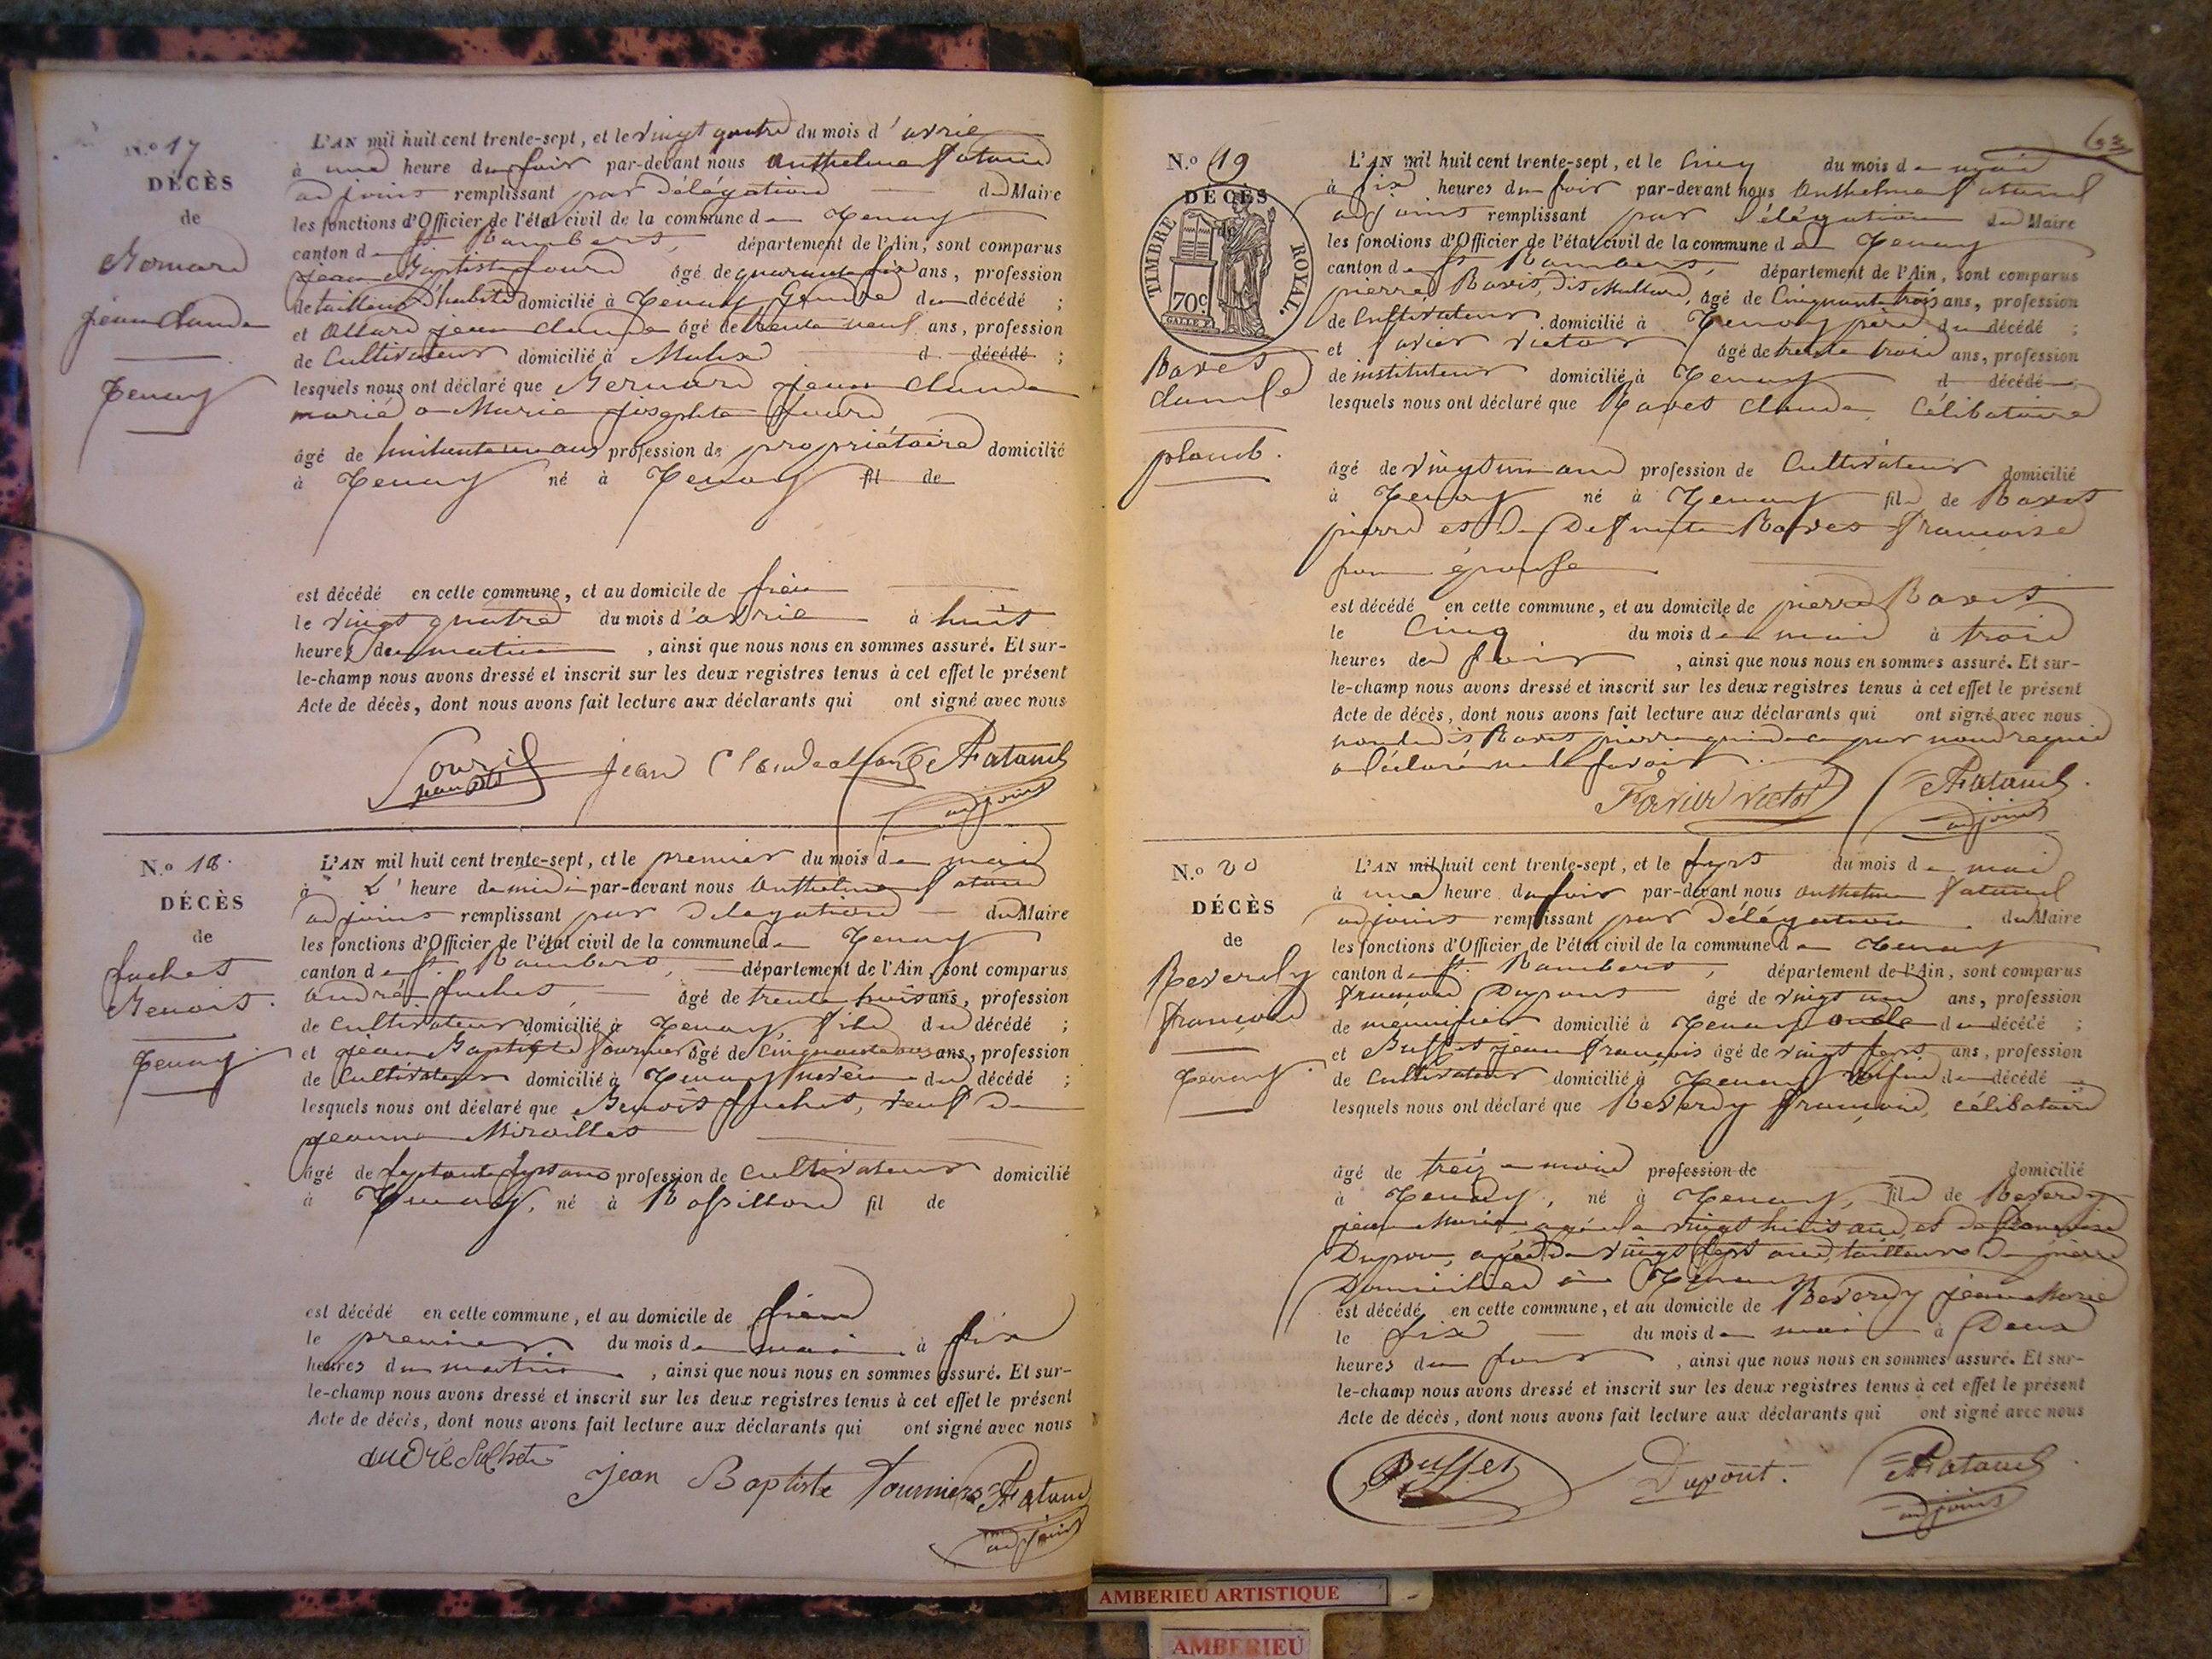 N.o 17
DÉCÈS
de
Bernard
jean claude
Tenay
L'AN mil huit cent trente-sept, et le vingt quatre du mois d'avril
à une heure du soir par-devant nous Anthelme Fatanel
adjoint remplissant par délégation du Maire
les fonctions d'Officier de l'état civil de la commune de Tenay
canton de St. Rambert, département de l'Ain, sont comparus
jean Baptiste âgé de quarante six ans, profession
de tailleur d'habits domicilié à Tenay Gendre du décédé ;
et Allard jean claude âgé de trente neuf ans, profession
de Cultivateur domicilié à d décédé ;
lesquels nous ont déclaré que Bernard jean claude
marié a Marie josephte
âgé de huitante un ans profession de propriétaire domicilié
à Tenay né à Tenay fil de
est décédé en cette commune, et au domicile de sien
le vingt quatre du mois d'avril à huit
heures du matin, ainsi que nous nous en sommes assuré. Et sur-
le-champ nous avons dressé et inscrit sur les deux registres tenus à cet effet le présent
Acte de décès, dont nous avons fait lecture aux déclarants qui ont signé avec nous
jean claude allard AFatanel
adjoint
N.o 18.
DÉCÈS
de
Juchet
Benoit.
Tenay
L'AN mil huit cent trente-sept, et le premier du mois de mai
à L'heure de midi par-devant nous Anthelme Fatanel
adjoint remplissant par délégation du Maire
les fonctions d'Officier de l'état civil de la commune de Tenay
canton de St. Rambert, département de l'Ain, sont comparus
andré Juchet, âgé de trente huit ans, profession
de cultivateur domicilié à Tenay, fils du décédé ;
et jean Baptiste Tournier âgé de Cinquante ans, profession
de Cultivateur domicilié à Tenay neveu du décédé ;
lesquels nous ont déclaré que Benoit Juchet, veuf de
jeanne
âgé de septante sept ans profession de cultivateur domicilié
à Tenay, né à Rossillon fil de
est décédé en cette commune, et au domicile de sien
le premier du mois de mai à six
heures du matin, ainsi que nous nous en sommes assuré. Et sur-
le-champ nous avons dressé et inscrit sur les deux registres tenus à cet effet le présent
Acte de décès, dont nous avons fait lecture aux déclarants qui ont signé avec nous
andré
Jean Baptiste Tournier AFatanel
adjoint
63
N.o 19
DÉCÈS
de
TIMBRE ROYAL.
70c.
Ravet
claude
plomb.
L'AN mil huit cent trente-sept, et le Cinq du mois de mai
à six heures du soir par-devant nous Anthelme Fatanel
adjoint remplissant par délégation du Maire
les fonctions d'Officier de l'état civil de la commune de Tenay
canton de St. Rambert, département de l'Ain, sont comparus
pierre Ravet, dit âgé de Cinquante trois ans, profession
de Cultivateur domicilié à Tenay père du décédé ;
et Favier victor âgé de trente trois ans, profession
de instituteur domicilié à Tenay d décédé ;
lesquels nous ont déclaré que Ravet claude, Célibataire
âgé de vingt un ans profession de Cultivateur domicilié
à Tenay né à Tenay fils de Ravet
pierre et de Defunte Ravet françoise
son épouse
est décédé en cette commune, et au domicile de pierre Ravet
le Cinq du mois de mai à trois
heures du soir, ainsi que nous nous en sommes assuré. Et sur-
le-champ nous avons dressé et inscrit sur les deux registres tenus à cet effet le présent
Acte de décès, dont nous avons fait lecture aux déclarants qui ont signé avec nous
non ledit Ravet pierre qui de ce par nous requis
a déclaré ne le savoir.
Favier victor AFatanel.
adjoint
N.o 20
DÉCÈS
de
Reverdy
François
Tenay.
L'AN mil huit cent trente-sept, et le sept du mois de mai
à une heure du soir par-devant nous Anthelme Fatanel
adjoint remplissant par délégation du Maire
les fonctions d'Officier de l'état civil de la commune de Tenay
canton de St. Rambert, département de l'Ain, sont comparus
François Dupont âgé de vingt un ans, profession
de menuisier domicilié à Tenay oncle du décédé ;
et Buffet jean François âgé de vingt sept ans, profession
de Cultivateur domicilié à Tenay voisin du décédé ;
lesquels nous ont déclaré que Reverdy François, célibataire
âgé de treize mois profession de domicilié
à Tenay, né à Tenay, fils de Reverdy
jean Marie agé de vingt huit ans, et de françoise
Dupont, agée de vingt sept ans, tailleurs de pierre
Domiciliés à Tenay
est décédé en cette commune, et au domicile de Reverdy jean Marie
le six du mois de mai à Deux
heures du soir, ainsi que nous nous en sommes assuré. Et sur-
le-champ nous avons dressé et inscrit sur les deux registres tenus à cet effet le présent
Acte de décès, dont nous avons fait lecture aux déclarants qui ont signé avec nous
Buffet Dupont. AFatanel
adjoint
AMBERIEU ARTISTIQUE
AMBERIEU